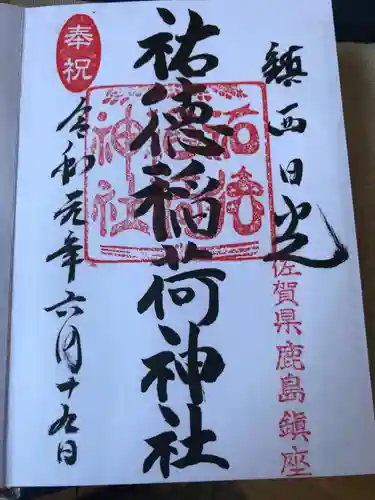 鎮西日光
佐賀県鹿島鎮座
祐徳稲荷神社
祐徳
神社
奉祝
令和元年六月十九日